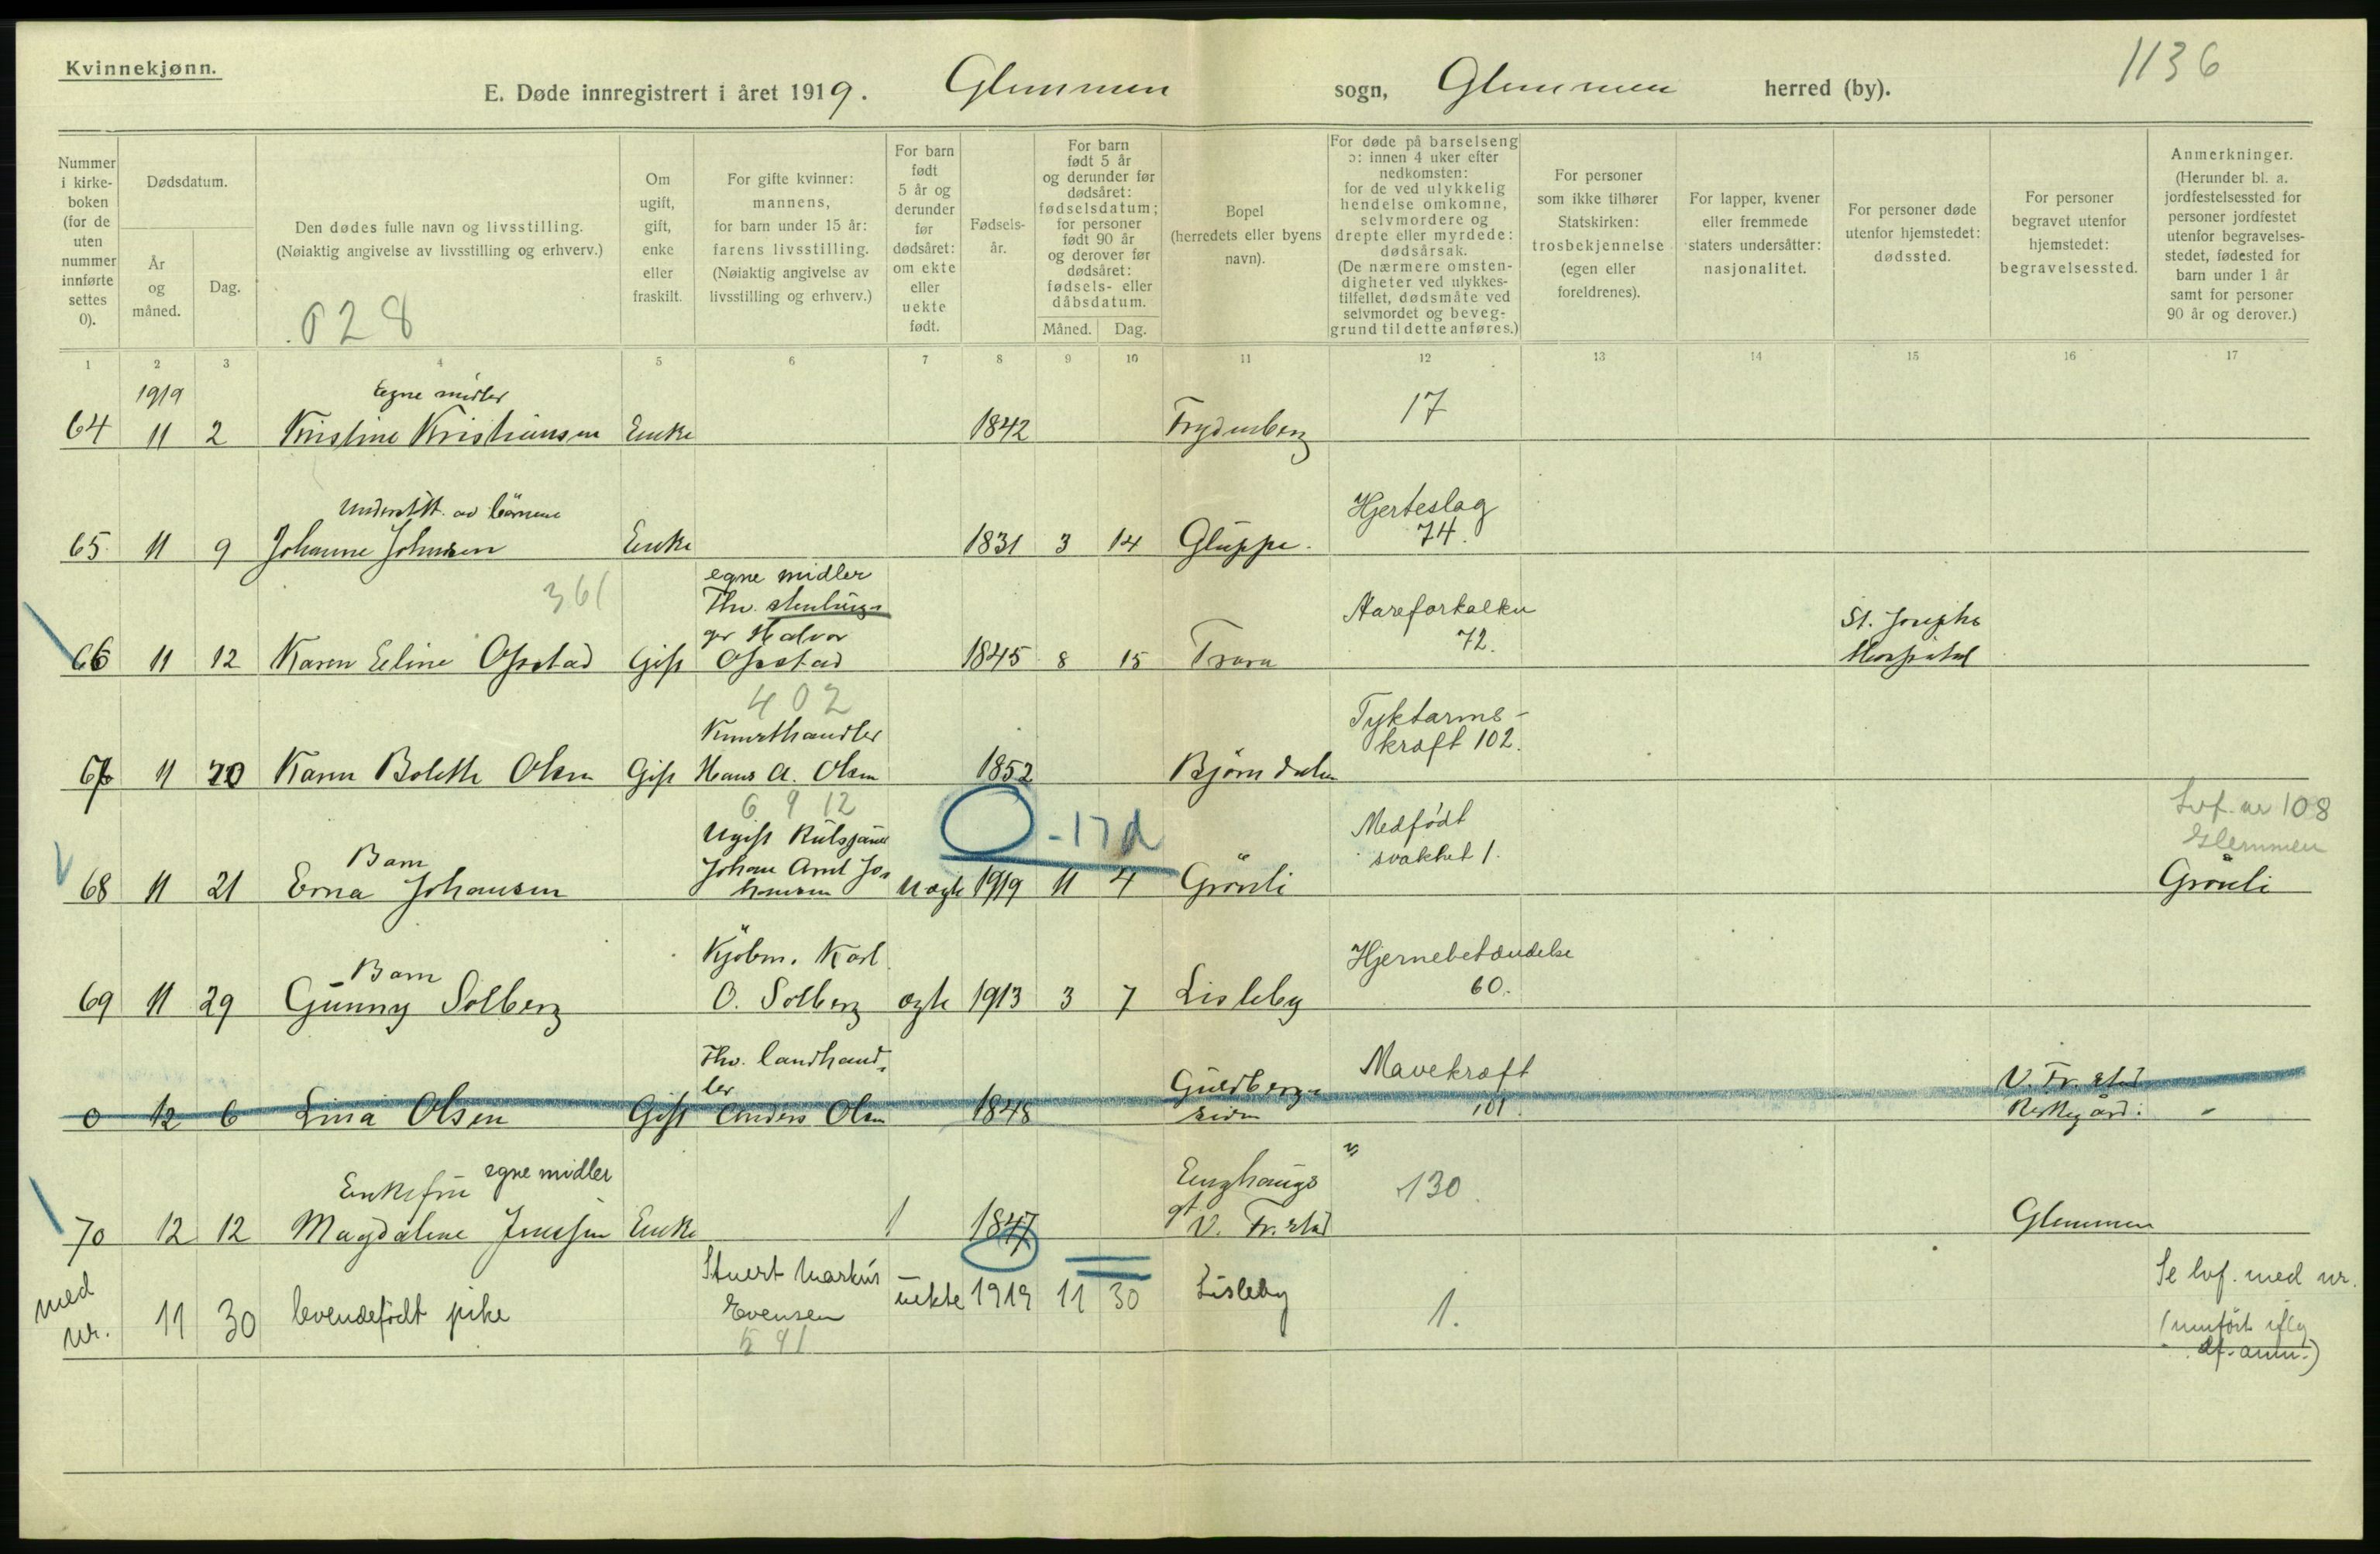 Kvinnekjønn.
1136
E. Døde innregistrert i året 1919. Glemmen sogn, Glemmen herred (by).
Nummer i kirke-boken (for de uten nummer innførte settes 0).
Dødsdatum.
År og måned.
Dag.
Den dødes fulle navn og livsstilling.
(Nøiaktig angivelse av livsstilling og erhverv.)
628
Om ugift, gift, enke eller fraskilt.
For gifte kvinner: mannens, for barn under 15 år: farens livsstilling. (Nøiaktig angivelse av livsstilling og erhverv.)
For barn født 5 år og derunder før dødsåret: om ekte eller uekte født.
Fødsels-år.
For barn født 5 år og derunder før dødsåret: fødselsdatum; for personer født 90 år og derover før dødsåret: fødsels- eller dåbsdatum.
Måned. Dag.
Bopel (herredets eller byens navn).
For døde på barselseng ɔ: innen 4 uker efter nedkomsten: for de ved ulykkelig hendelse omkomne, selvmordere og drepte eller myrdede: dødsårsak. (De nærmere omsten-digheter ved ulykkes-tilfellet, dødsmåte ved selvmordet og beveg-grund til dette anføres.)
For personer som ikke tilhører Statskirken: trosbekjennelse (egen eller foreldrenes).
For lapper, kvener eller fremmede staters undersåtter: nasjonalitet.
For personer døde utenfor hjemstedet: dødssted.
For personer begravet utenfor hjemstedet: begravelsessted.
Anmerkninger. (Herunder bl. a. jordfestelsessted for personer jordfestet utenfor begravelses-stedet, fødested for barn under 1 år samt for personer 90 år og derover.)
1 2 3 4 5 6 7 8 9 10 11 12 13 14 15 16 17
1919 egne midler
64 11 2 Kristine Kristiansen Enke 1842 Frydenberg 17
Understøtt. av börnene Hjerteslag
65 11 9 Johanne Johnsen Enke 1831 3 14 Gluppe. 74.
361 egne midler
Thv. Halvor Aareforkalkn St. Josephs
66 11 12 Karen Eline Opstad Gift Opstad 1845 8 15 Trara 72. Hospital
402
Tyktarms-
67 11 20 Karen Bolette Olsen Gift Hans A. Olsen 1852 Bjørndalen kræft 102.
6 9 12
O - 17 d Lvf. nr 108
Barn Ugift Medfødt Glemmen
68 11 21 Erna Johansen Johan Arnt Johansen Uægte 1919 11 4 Grønli svakhet 1. Grønli
Barn Kjøbm. Karl Hjernebetændelse
69 11 29 Gunny Solberg O. Solberg ægte 1913 3 7 Lisleby 60.
Fhv. landhand-
ler Guldbergs- Mavekræft V. Fr.stad
0 12 6 Lina Olsen Gift Anders Olsen 1848 siden 101. Kirkegård.
Enkefru egne midler 130
70 12 12 Magdalene Jenssen Enke 1 1847 V. Fr.stad Glemmen
med
nr. 11 30 levendefødt pike Stuert Markus Evensen uekte 1919 11 30 Lisleby 1. Se lvf. med nr.
591 (innført iflg
df. anm.)